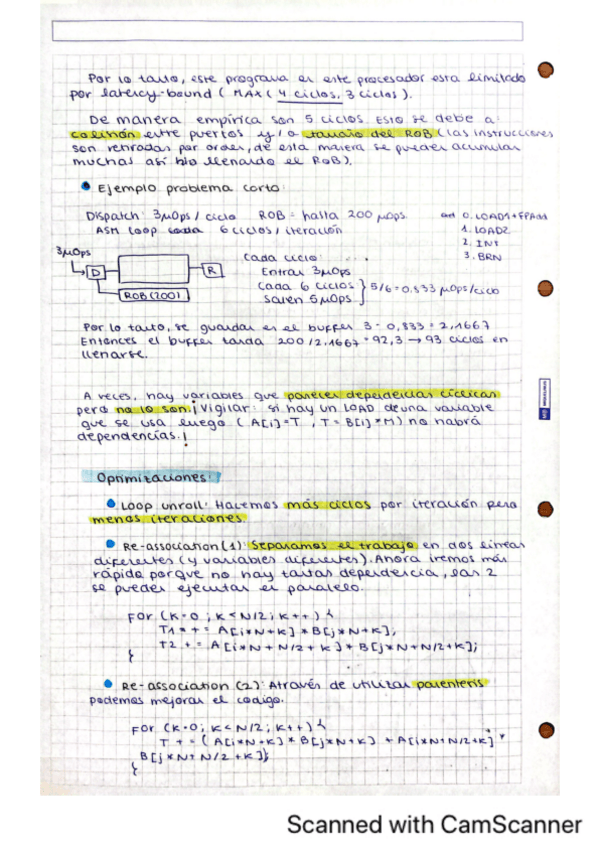 Por lo tanto, este programa en este procesador esta limitado
por latency-bound ( MAX ( 4 ciclos, 3 ciclos ).
De manera empírica son 5 ciclos. Esto se debe a
colisión entre puertos y/o tamaño del ROB (las instrucciones
son retiradas por orden, de esta manera se pueden acumular
muchas así blo llenando el ROB).
Ejemplo problema corto:
Dispatch: 3μOps / ciclo ROB = hasta 200 μops
0. LOAD1+FPAdd
ASM Loop 6 ciclos / iteración
1. LOAD2
2. INT
3. BRN
3μOps
D
R
ROB (200)
Cada ciclo: ...
Entran 3μOps
Cada 6 ciclos
Salen 5μOps
} 5/6 = 0.833 μOps/ciclo
Por lo tanto, se guardan en el buffer 3 - 0,833 = 2,1667
Entonces el buffer tarda 200/2,1667 = 92,3 → 93 ciclos en
llenarse.
A veces, hay variables que parecen dependencias cíclicas
pero no lo son. ¡Vigilar: si hay un LOAD de una variable
que se usa luego ( A[i]=T , T = B[i]*M) no habrá
dependencias.!
Optimizaciones:
Loop unroll: Hacemos más ciclos por iteración pero
menos iteraciones.
Re-association (1): Separamos el trabajo en dos lineas
diferentes (y variables diferentes). Ahora iremos más
rápido porque no hay tantas dependencia, las 2
se pueden ejecutar en paralelo.
For (K=0 ; K < N/2 ; K++) {
T1 += A[i*N+K] * B[j*N+K];
T2 += A[i*N + N/2 + K] * B[j*N+N/2+K];
}
Re-association (2): Através de utilizar parentesis
podemos mejorar el codigo.
For (K=0; K < N/2 ; K++) {
T += ( A[i*N+K] * B[j*N+K] + A[i*N+N/2+K] *
B[j*N+ N/2 +K]);
}
Scanned with CamScanner